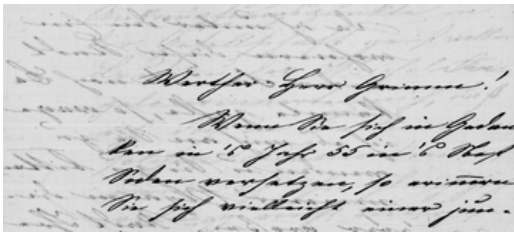 Werther Herr Grimm!
Wenn Sie sich in Gedan
ken in's Jahr 55 in's
Soden versetzen, so erinnern
Sie sich vielleicht einer jun-